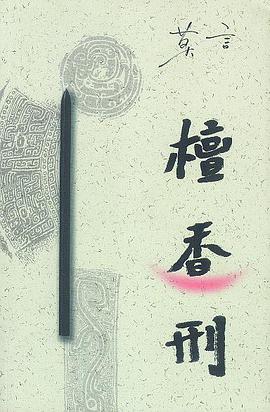 莫言
檀
香
刑